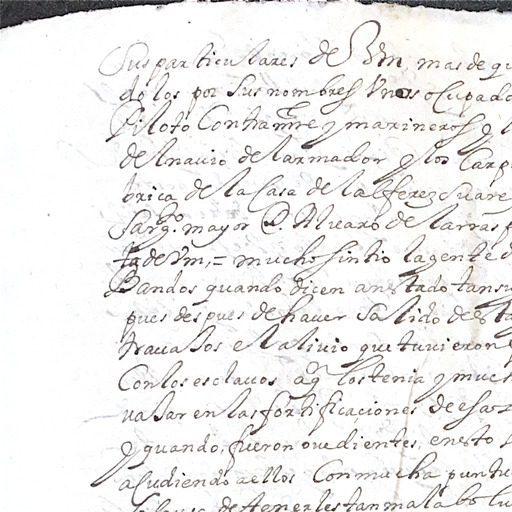 Sus particulares de Vm, mas de qu
dolos por sus nombres Unos ocupado
Piloto Contramre y marineros q l
del navio del armador y los Carp
brica de la Casa de la Alferez Suare
Sargto mayor D. Alvaro de larras p
ta de Vm,= mucho sintio la gente d
Bandos quando dicen an estado tan su
pues despues de haver salido de esta
travaxos el alivio que tuvieron
Con los esclavos a q los tenia y mues
vaxar en las fortificaciones de esa
y quando, fueron ovedientes, en esto
acudiendo a ellos Con mucha puntu
de tenerles tan mala bolu